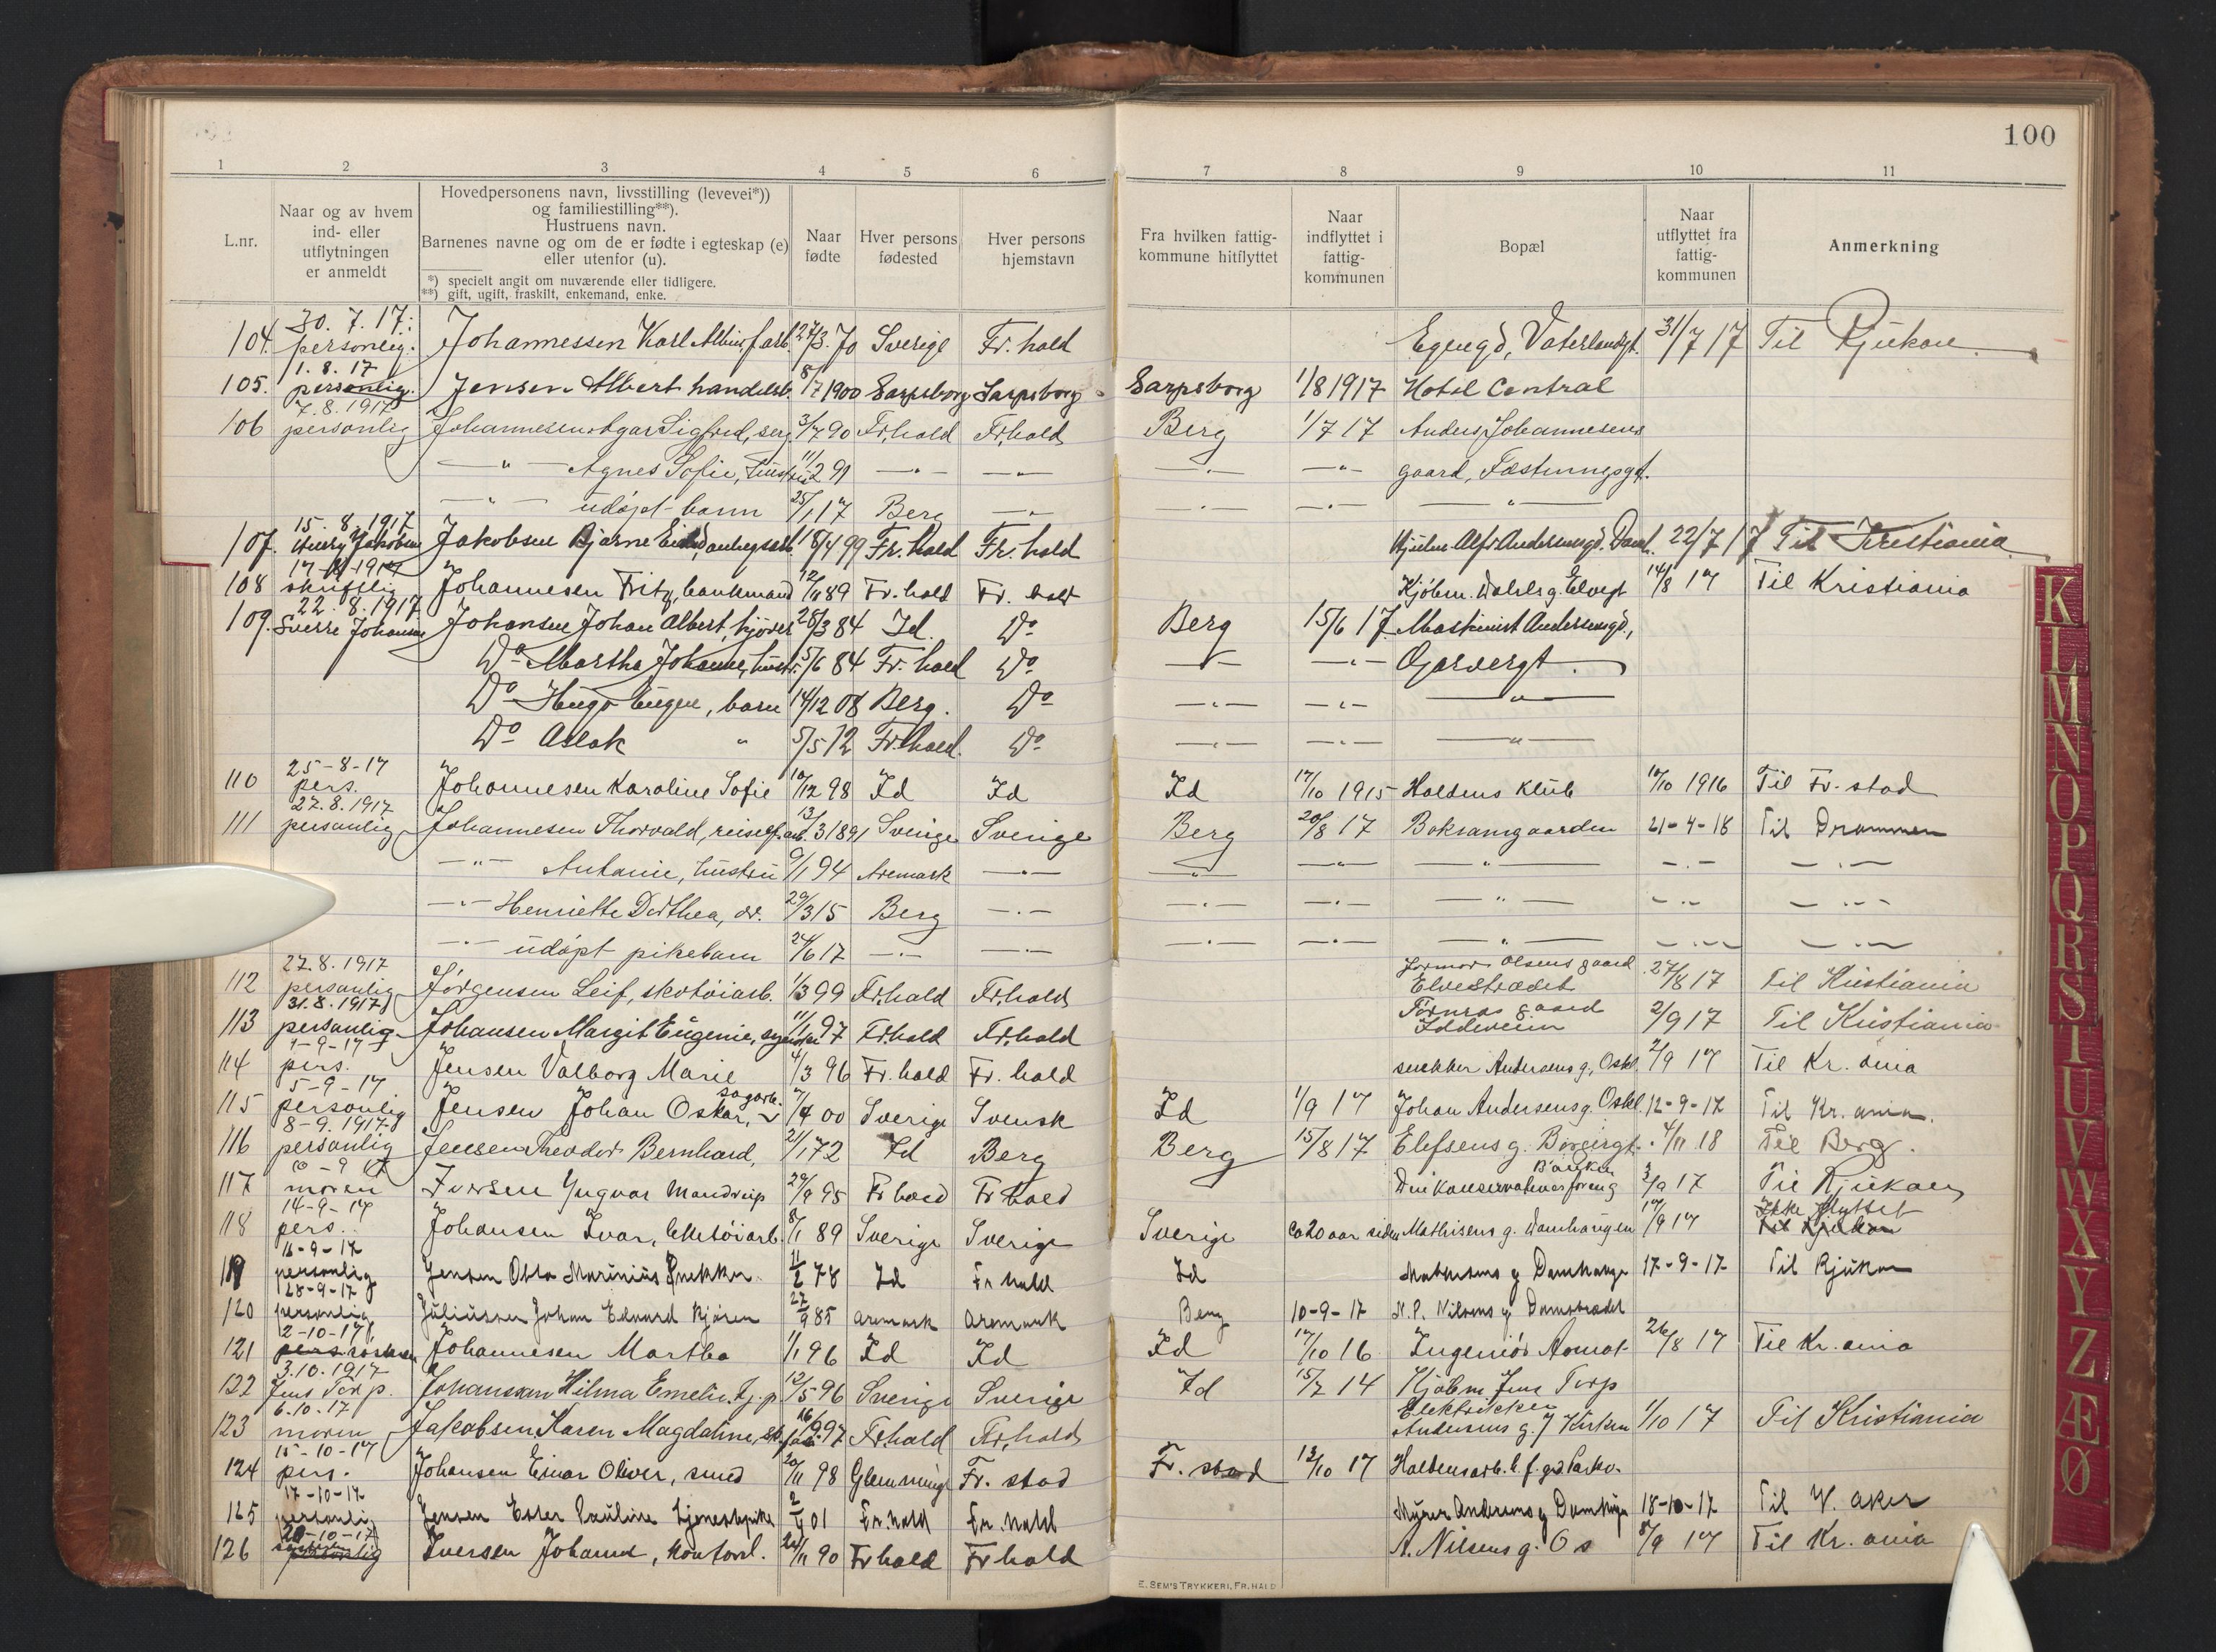 100
1 2 3 4 5 6 7 8 9 10 11
L.nr.
Naar og av hvem ind- eller utflytningen er anmeldt
Hovedpersonens navn, livsstilling (levevei*)) og familiestilling**).
Hustruens navn.
Barnenes navne og om de er fødte i egteskap (e) eller utenfor (u).
*) specielt angit om nuværende eller tidligere.
**) gift, ugift, fraskilt, enkemand, enke.
Naar fødte
Hver persons fødested
Hver persons hjemstavn
Fra hvilken fattigkommune hitflyttet
Naar indflyttet i fattigkommunen
Bopæl
Naar utflyttet fra fattigkommunen
Anmerkning
30. 7. 17.
104. personlig. Johannessen Karl Albin, f.arb. 27/3. 70 Sverige Fr. hald Egengd, Vaterlandgt. 31/7 17 Til Rjukan
1. 8. 17
105. personlig. Jensen Albert handelsb. 8/7 1900 Sarpsborg Sarpsborg Sarpsborg 1/8 1917 Hotel Central
7. 8. 1917
106 personlig Johannesen Agar Sigfred, serg. 3/7 90 Fr.hald Fr.hald Berg 1/7 17 Anders Johannesens
—"— Agnes Sofie, hustru 11/2 91 —"— —"— —"— —"— gaard, Fæstningsgt.
—"— udøpt barn 25/1 17 Berg —"— —"— —"— —"—
15. 8. 1917
107. Jakobsen Jakobsen Bjarne 18/4 99 Fr. hald Fr. hald Alf. Andersengd. 22/7 17 Til Kristiania
17-8-1917
108 skriftlig Johannesen Fritz, bankmand 12/11 89 Fr. hald Fr. hald Kjøbm. Dahls g. Elvegt 14/8 17 Til Kristiania
22. 8. 1917
109. Sverre Johansen Johansen Johan Albert, kjører 28/3 84 Id. Do Berg 15/6 17. Maskinist Andersengd.,
Do Martha Johanne, hustr. 5/6 84 Fr. hald Do —"— —"—
Do Hugo Eugen, barn 14/12 08 Berg. Do —"— —"— —"—
Do Aslak " 5/5 12 Fr.hald. Do —"— —"— —"—
25-8-17
110 pers. Johannesen Karoline Sofie 10/12 98 Id Id Id 17/10 1915 Haldens Klub 17/10 1916 Til Fr. stad
27. 8. 1917
111 personlig Johannesen Thorvald, 13/3 1891 Sverige Sverige Berg 20/8 17 21-4-18 Til Drammen
—"— Antonie, hustru 9/1 94 Aremark —"— —"— —"— —"— —"— —"—
—"— Henriette Dorthea, dr. 29/3 15 Berg —"— —"— —"— —"— —"— —"—
—"— udøpt pikebarn 24/6 17 —"— —"— —"— —"— —"— —"— —"—
27. 8. 1917
112 personlig Jörgensen Leif, skotöiarb. 1/3 99 Fr.hald Fr.hald Olsens gaard Elvestrædet 27/8 17 Til Kristiania
31. 8. 1917
113 personlig Johansen Margit Eugenie, 11/1 97 Fr.hald Fr.hald gaard Iddeveien 2/9 17 Til Kristiania
4-9-17
114 pers. Jensen Valborg Marie 4/3 96 Fr. hald Fr. hald snekker Andersens g., Oskl. 2/9 17 Til Kr. ania
5-9-17
115 personlig Jensen Johan Oskar, sagarb. 7/4 00 Sverige Svensk Id 1/9 17 Johan Andersens g. Oskl. 12-9-17 Til Kr. ania.
8-9. 1917
116 personlig Jensen Theodor Bernhard, 21/1 72 Id Berg Berg 15/8 17 Elefsens g. Borgergt. 4/11 18 Til Berg.
10-9 17
117 moren Iversen Yngvar Mandrup 29/9 95 Fr hald Fr hald Den Konservative forening Banken 3/9 17 Til Rjukan
14-9-17
118 pers. Johansen Ivar, 8/1 89 Sverige Sverige Sverige ca 20 aar siden Mathisens g. Damhaugen 17/9 17 Ikke flyttet Til Rjukan
16-9-17
119 personlig Jensen Otto Marinius Snekker. 11/2 78 Id Fr hald Id Mathisens g Damhaugn 17-9-17 Til Rjukan
28-9-17
120 personlig Juliussen Johan Edvard Kjører 27/9 85 Aremark Aremark Berg 10-9-17 N. P. Nilsens g Damstrædet
2-10-17
121 pers. Johannesen Martha 1/1 96 Id Id Id 17/10 16 Ingeniør 26/8 17 Til Kr. ania
3. 10. 1917
122 Jens Torp. Johansson Hilma Emelie. tj. p. 12/5 96 Sverige Sverige Id 15/7 14 Kjøbm. Jens Torp
6. 10. 17
123 moren Jakobsen Karen Magdaline, 16/9 97 Fr.hald Fr.hald Elektriker Andersens g. v/ Kirken 1/10 17 Til Kristiania
15-10-17
124 pers. Johansen Einar Oliver, smed 20/11 98 Glemminge Fr. stad Fr. stad 12/10 17 Haldens arb. f.
17-10-17
125 personlig Jensen Ester Pauline tjenestepike 2/9 01 Fr. hald Fr. hald Andersens g Damhaugn 18-10-17 Til V. Aker
20-10-17
126 personlig Iversen Johanne, kontorl. 24/11 90 Fr hald Fr hald A. Nilsens g. Os 8/9 17 Til Kr. ania
E. SEM'S TRYKKERI, FR.HALD
K
L
M
N
O
P
Q
R
S
T
U
V
W
X
Y
Z
Æ
Ø